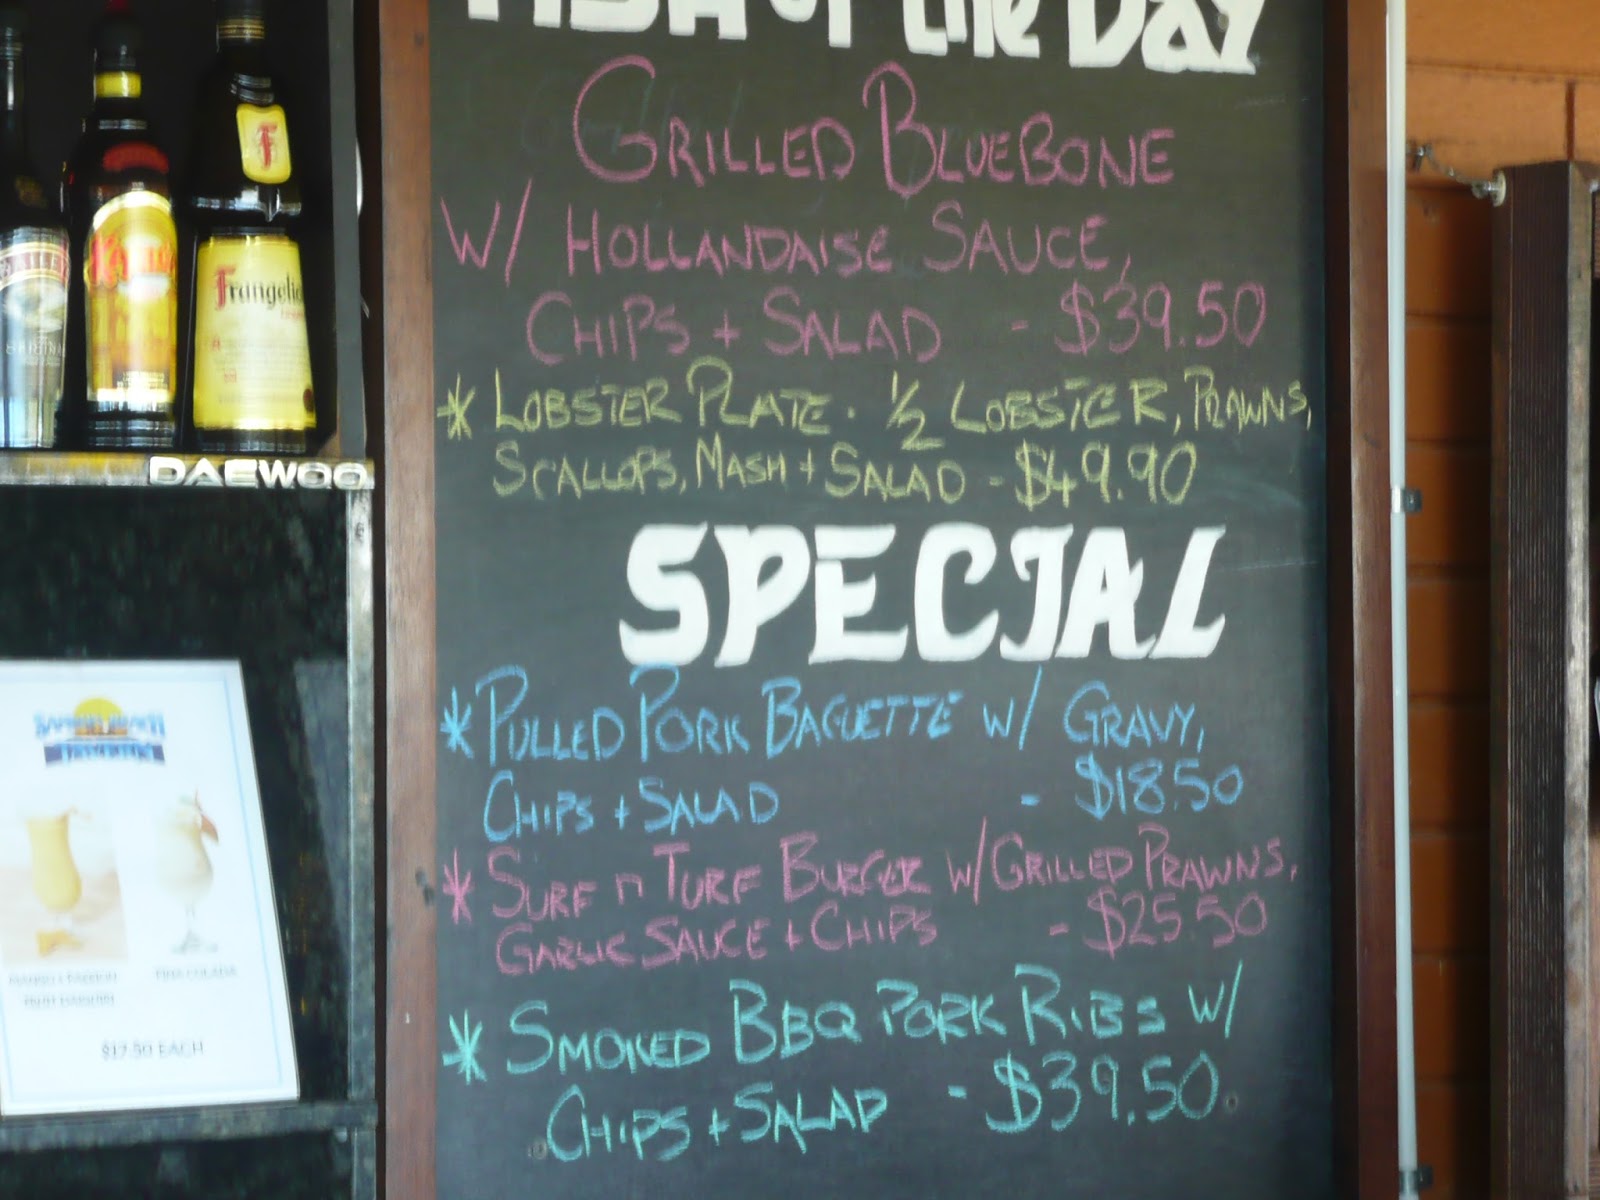 FISH of the DAY
GRILLED BLUEBONE
W/ HOLLANDAISE SAUCE,
CHIPS + SALAD - $39.50
* LOBSTER PLATE. 1/2 LOBSTER, PRAWNS,
SCALLOPS, MASH + SALAD - $49.90
SPECIAL
* PULLED PORK BAGUETTE W/ GRAVY,
CHIPS + SALAD - $18.50
* SURF n TURF BURGER W/ GRILLED PRAWNS,
GARLIC SAUCE + CHIPS - $25.50
* SMOKED BBQ PORK RIBS W/
CHIPS + SALAD - $39.50
F
Frangelic
DAEWOO
PINA COLADA
$17.50 EACH